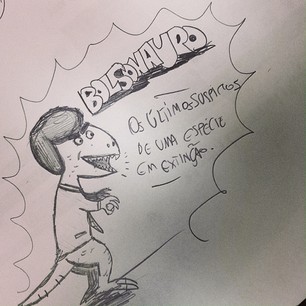 BOLSONAURO
OS ÚLTIMOS SUSPIROS
DE UMA ESPÉCIE
EM EXTINÇÃO.